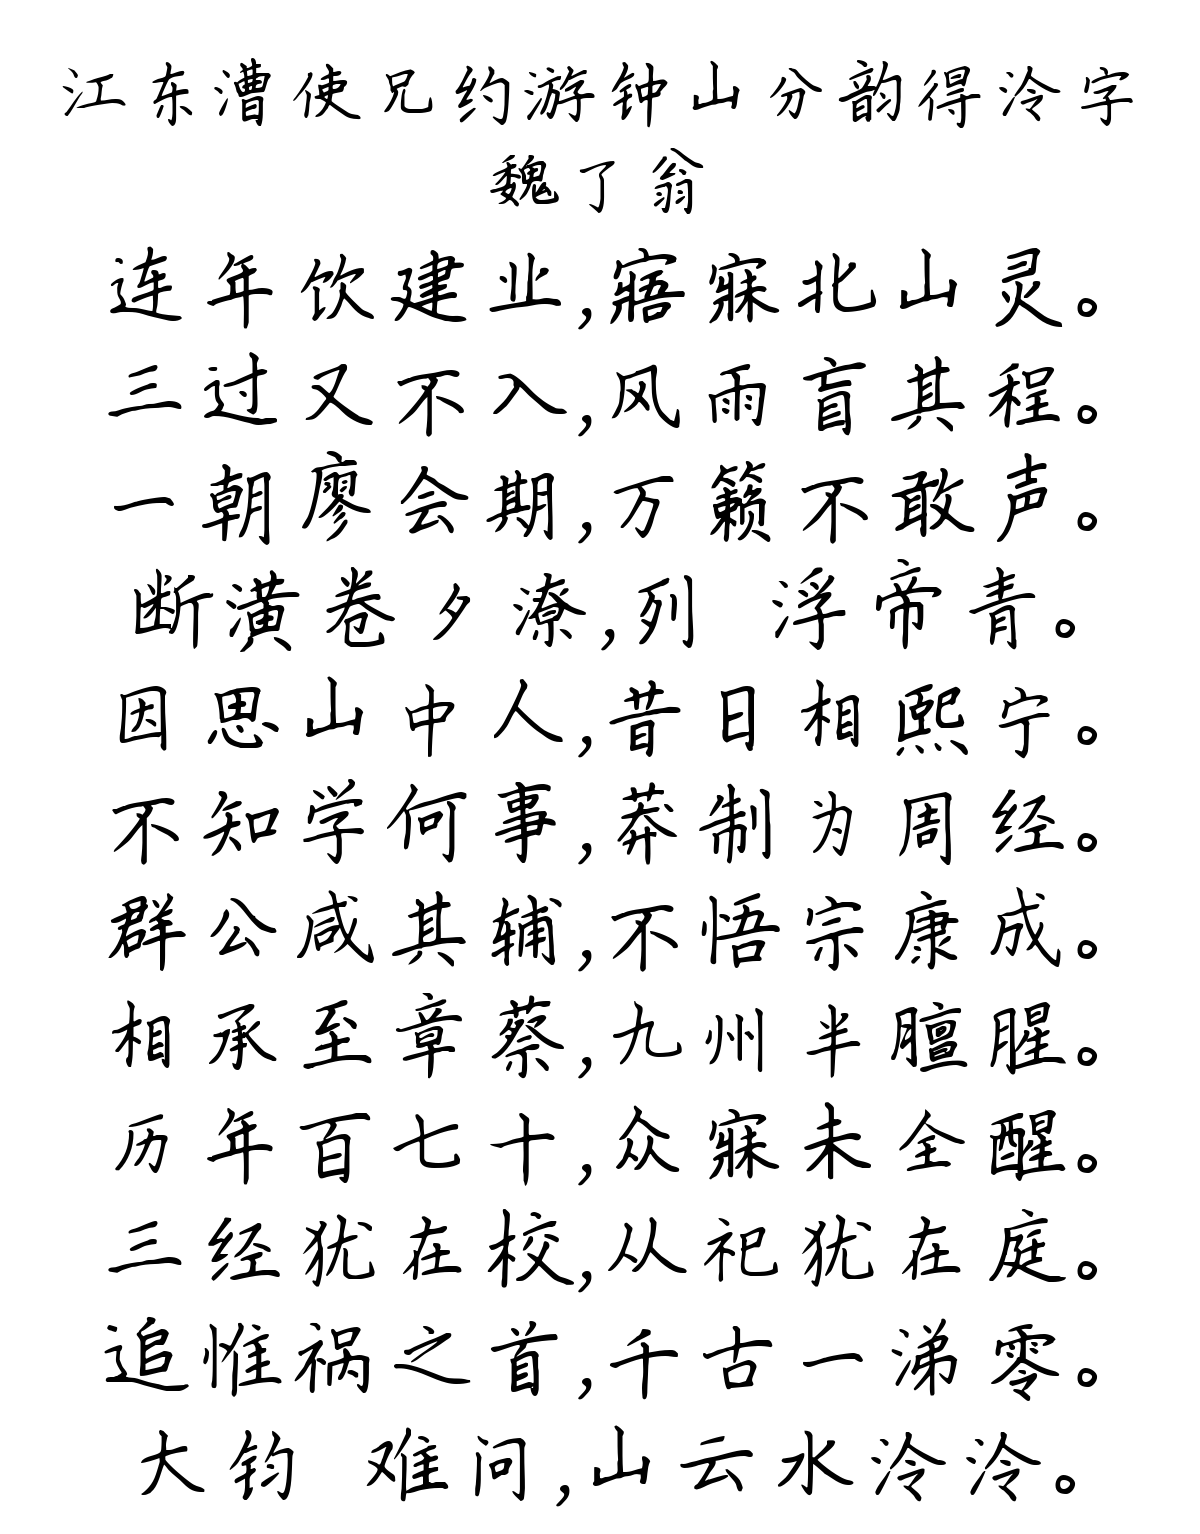 江东漕使兄约游钟山分韵得泠字
魏了翁
连年饮建业,寤寐北山灵。
三过又不入,风雨盲其程。
一朝廖会期,万籁不敢声。
断潢卷夕潦,列 浮帝青。
因思山中人,昔日相熙宁。
不知学何事,莽制为周经。
群公咸其辅,不悟宗康成。
相承至章蔡,九州半膻腥。
历年百七十,众寐未全醒。
三经犹在校,从祀犹在庭。
追惟祸之首,千古一涕零。
大钧 难问,山云水泠泠。